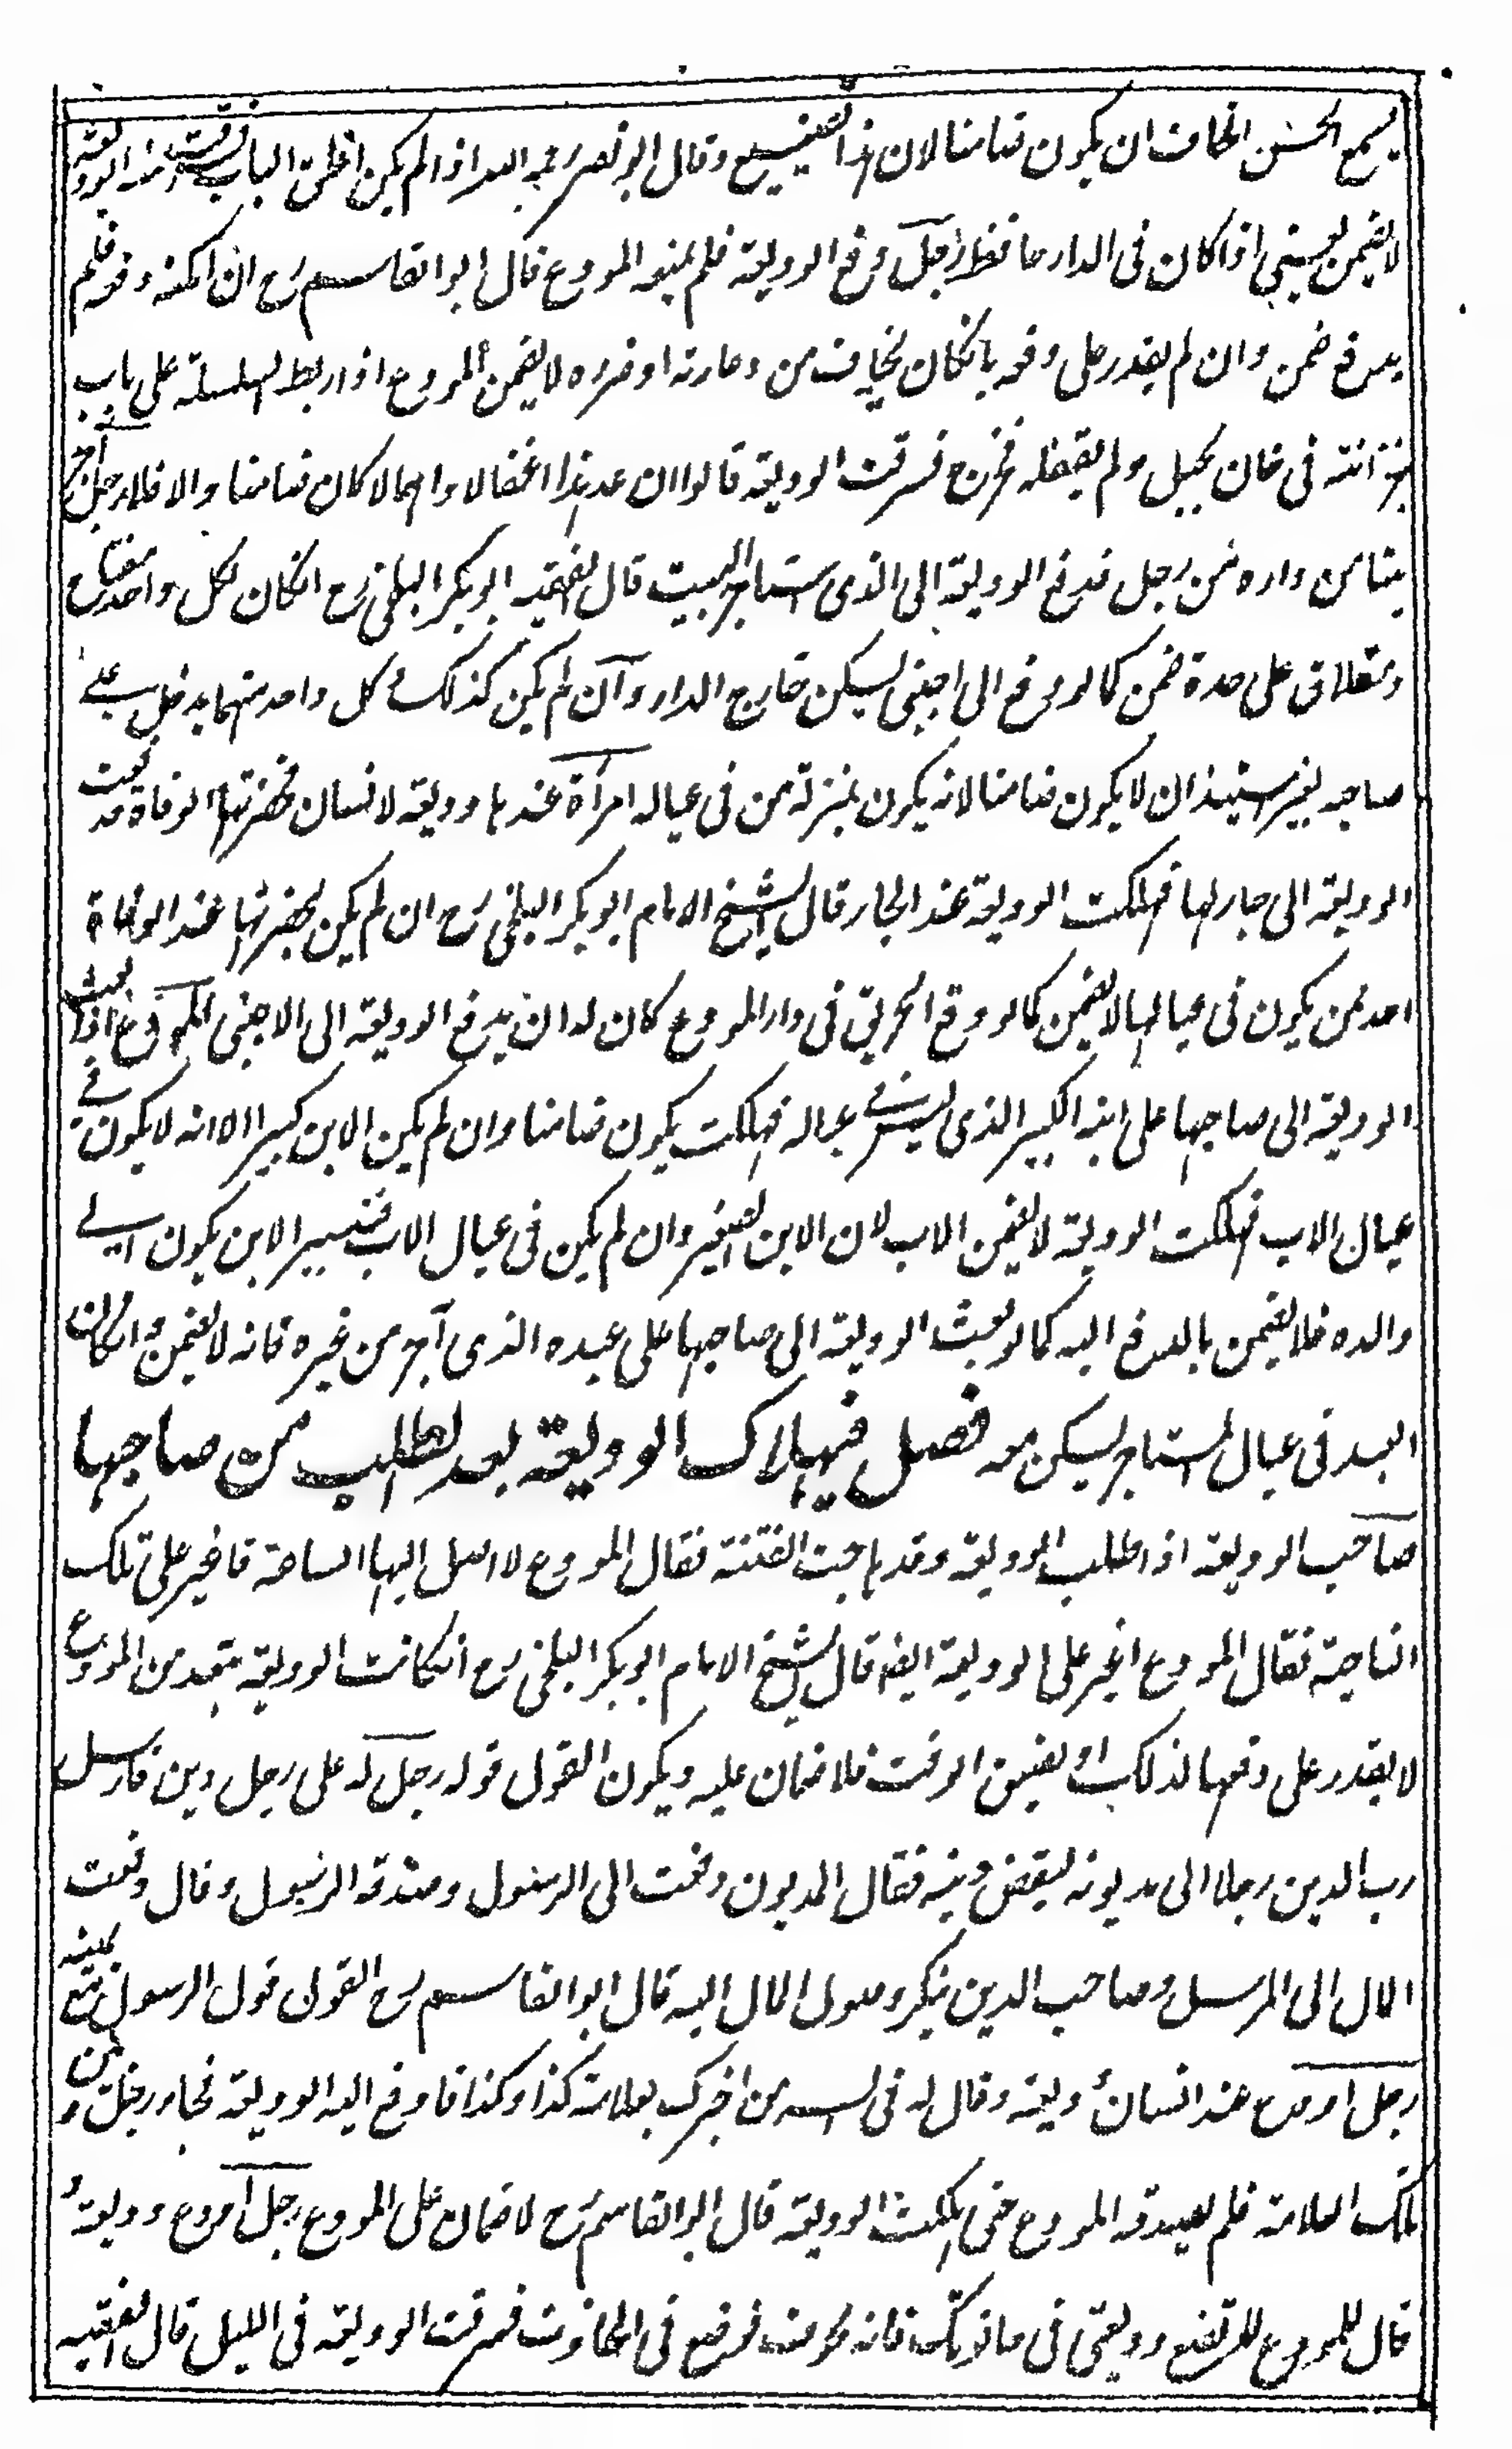 يسمع الحسن اخاف ان يكون ضامنا لان هذا تضييع وقال ابو نصر رحمه الله اذا لم يكن اغلق الباب فسرقت منه الوديعة
لا يضمن يعني اذا كان في الدار حافظ رجل رفع الوديعة فلم يمنعه المودع قال ابو القاسم رح ان امكنه دفعه فلم
يدفع ضمن وان لم يقدر على دفعه بانكان يخاف من دعارته او ضربه لا يضمن المودع اذا ربط السلسلة على باب
خزانته في خان بحبل ولم يقفله فخرج فسرقت الوديعة قالوا ان عد هذا اغفالا واهمالا كان ضامنا والا فلا رجل آجر
بيتا من داره من رجل فدفع الوديعة الى الذي استاجر البيت قال الفقيه ابو بكر البلخي رح انكان لكل واحد مفتاح
ومغلاق على حدة ضمن كما لو دفع الى اجنبي يسكن خارج الدار وان لم يكن كذلك وكل واحد منهما يدخل على
صاحبه بغير استيذان لا يكون ضامنا لانه يكون بمنزلة من في عياله امرأة عندها وديعة لانسان فحضرتها الوفاة فدفعت
الوديعة الى جار لها فهلكت الوديعة عند الجار قال الشيخ الامام ابو بكر البلخي رح ان لم يكن بحضرتها عند الوفاة
احد ممن يكون في عيالها لا يضمن كما لو وقع الحريق في دار المودع كان له ان يدفع الوديعة الى الاجنبي المودع اذا بعث
الوديعة الى صاحبها على ابنه الكبير الذي ليس في عياله فهلكت يكون ضامنا وان لم يكن الابن كبيرا الا انه لا يكون في
عيال الاب فهلكت الوديعة لا يضمن الاب لان الابن الصغير وان لم يكن في عيال الاب فتدبير الابن يكون الى
والده فلا يضمن بالدفع اليه كما لو بعث الوديعة الى صاحبها على عبده الذي آجر من غيره فانه لا يضمن وانكان
العبد في عيال المستاجر يسكن معه فصل في هلاك الوديعة بعد الطلب من صاحبها
صاحب الوديعة اذا طلب الوديعة وقد هاجت الفتنة فقال المودع لا اصل اليها الساعة فاغير على تلك
الناحية فقال المودع اغير على الوديعة ايضا قال الشيخ الامام ابو بكر البلخي رح انكانت الوديعة بتعد من المودع
لا يقدر على دفعها لذلك او لضيق الوقت فلا ضمان عليه ويكون القول قوله رجل له على رجل دين فارسل
رب الدين رجلا الى مديونه ليقبض دينه فقال المديون دفعت الى الرسول وصدقه الرسول وقال دفعت
المال الى المرسل وصاحب الدين ينكر وصول المال اليه قال ابو القاسم رح القول قول الرسول مع يمينه
رجل اودع عند انسان وديعة وقال له في السر من اخبرك بعلامة كذا وكذا فادفع اليه الوديعة فجاء رجل وبين
تلك العلامة فلم يصدقه المودع حتى هلكت الوديعة قال ابو القاسم رح لا ضمان على المودع رجل اودع وديعة و
قال للمودع لا تضع وديعتي في حانوتك فانه مخوف فوضع في الحانوت فسرقت الوديعة في الليل قال الفقيه